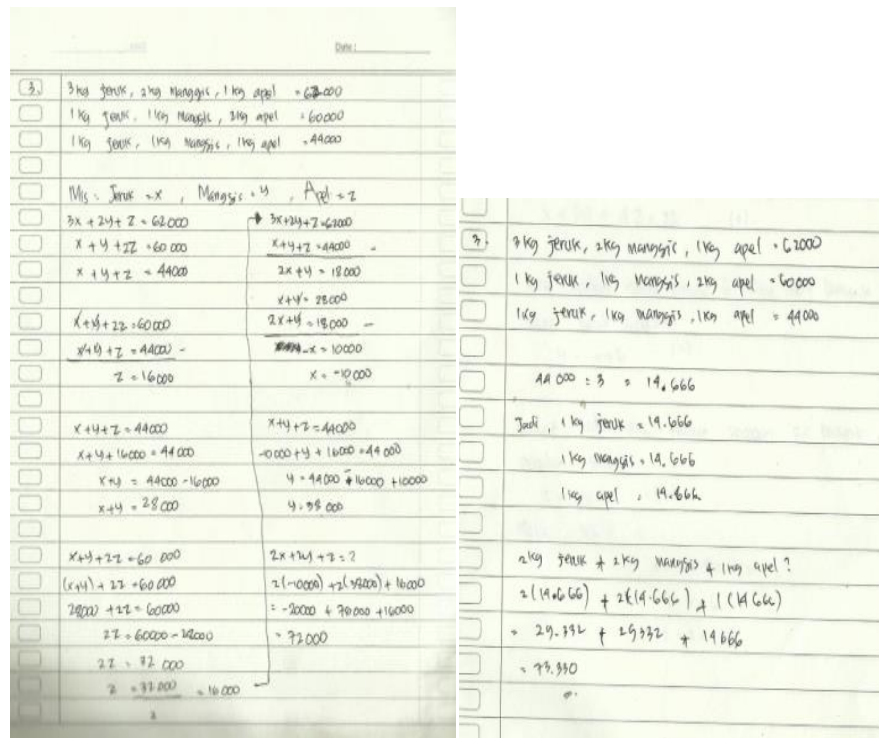 Date:
3. 3 kg jeruk, 2 kg Manggis, 1 kg apel = 62000
1 kg jeruk, 1 kg Manggis, 2kg apel = 60000
1 kg jeruk, 1kg Manggis, 1kg apel = 44000
Mis: Jeruk = x, Manggis = y, Apel = z
3x + 2y + z = 62000
x + y + 2z = 60 000
x + y + z = 44000
x+y+2z = 60000
x+y+z = 44000 -
z = 16000
x+y+z = 44000
x+y+16000 = 44 000
x+y = 44000 - 16000
x+y = 28 000
x+y+2z = 60 000
(x+y) + 2z = 60 000
28000 + 2z = 60000
2z = 60000 - 28000
2z = 32 000
z = 32000 = 16 000
2
3x+2y+z = 62000
x+y+z = 44000 -
2x + y = 18000
x+y = 28000
2x+y = 18000 -
-x = 10000
x = -10000
x+y+z = 44000
-0000 + y + 16000 = 44 000
y = 44000 - 16000 + 10000
y = 38 000
2x + 2y + z = ?
2(-10000) + 2(38000) + 16000
= -20000 + 76000 + 16000
= 72000
3. 3 kg jeruk, 2kg manggis, 1kg apel = 62000
1 kg jeruk, 1kg manggis, 2kg apel = 60000
1kg jeruk, 1kg manggis, 1kg apel = 44000
44 000 : 3 = 14.666
Jadi, 1 kg jeruk = 14.666
1 kg manggis = 14.666
1 kg apel = 14.666
2kg jeruk + 2kg manggis + 1kg apel?
2(14.666) + 2(14.666) + 1(14.666)
= 29.332 + 29332 + 14666
= 73.330